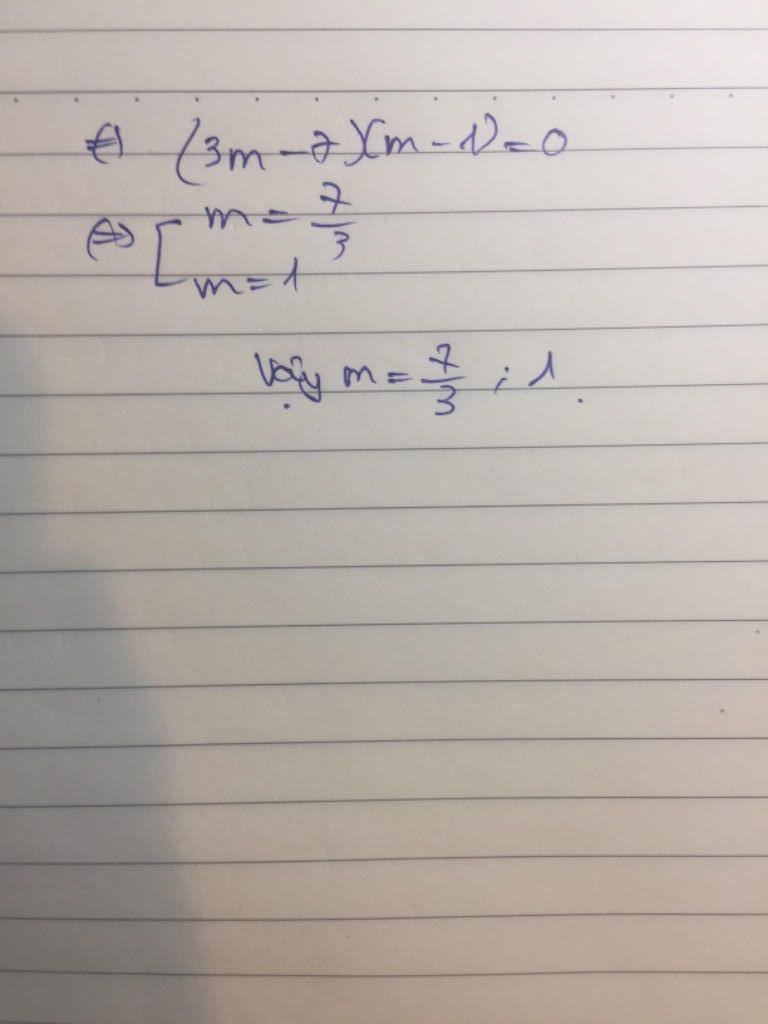 ⇔ (3m - 7)(m - 1) = 0
⇔ [ m = 7/3
m = 1
Vậy m = 7/3 ; 1.